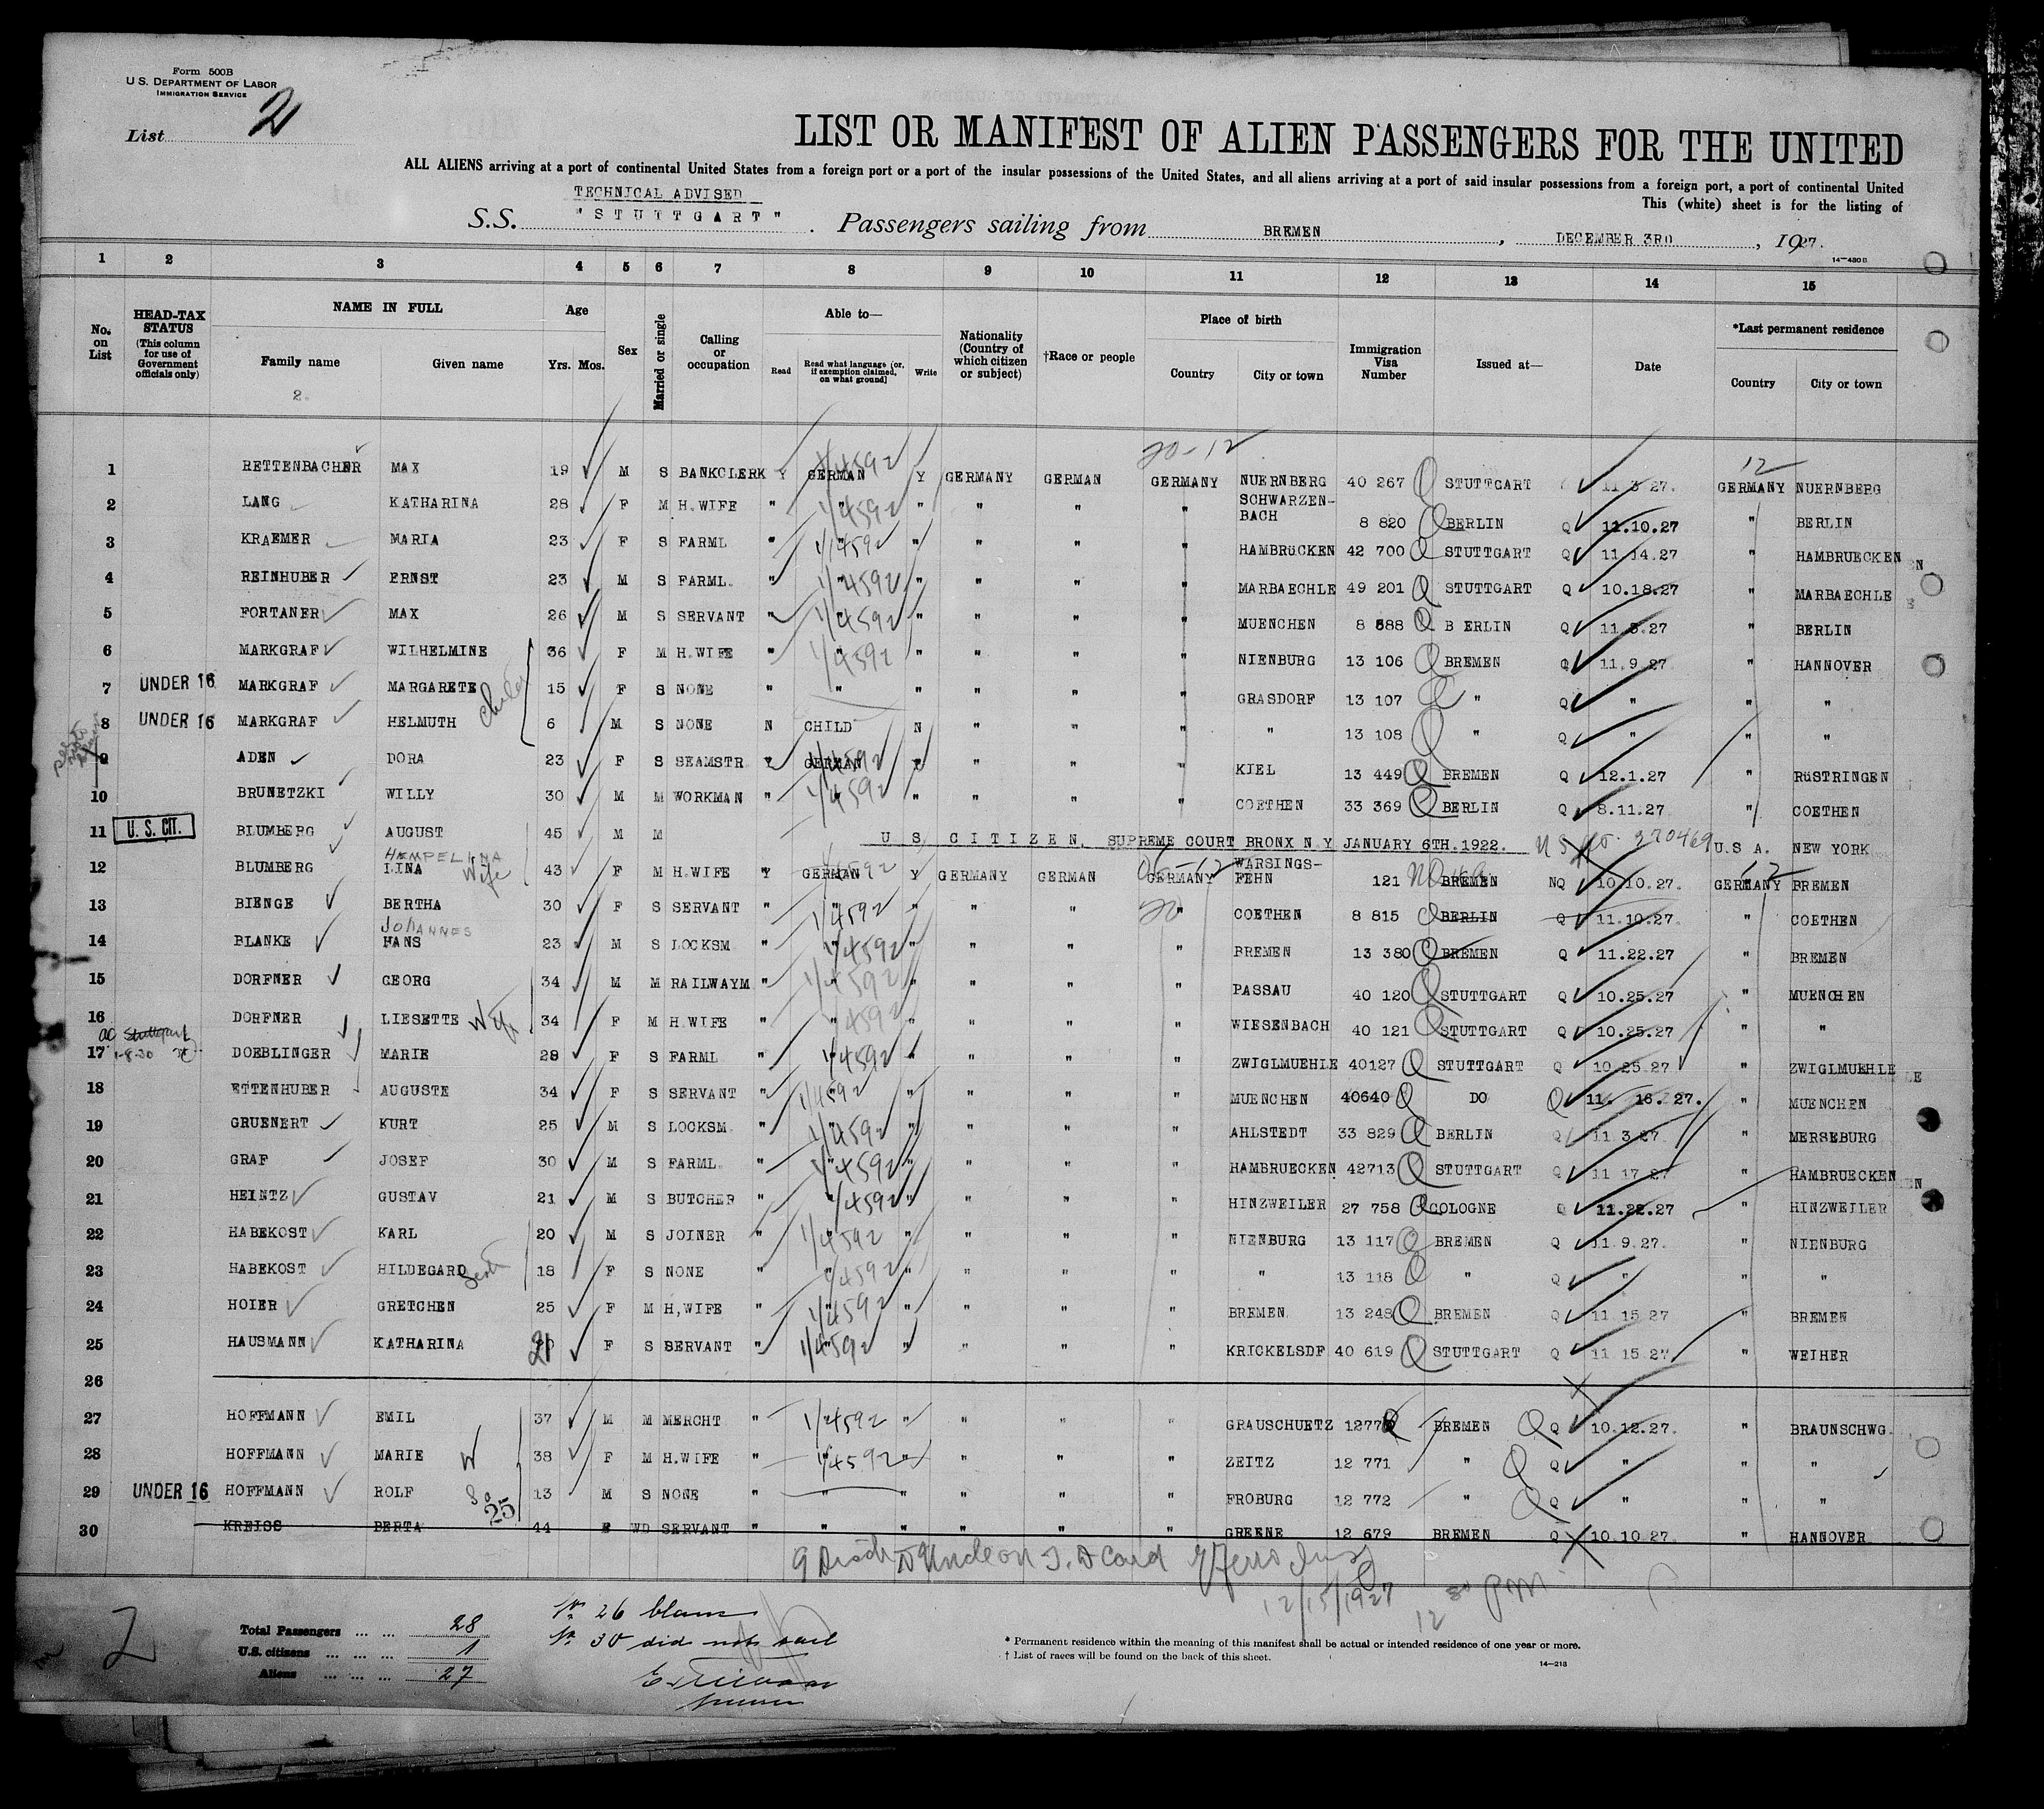 Form 500B
U. S. DEPARTMENT OF LABOR
IMMIGRATION SERVICE
List 2
LIST OR MANIFEST OF ALIEN PASSENGERS FOR THE UNITED
ALL ALIENS arriving at a port of continental United States from a foreign port or a port of the insular possessions of the United States, and all aliens arriving at a port of said insular possessions from a foreign port, a port of continental United
This (white) sheet is for the listing of
TECHNICAL ADVISED
S.S. "STUTTGART". Passengers sailing from BREMEN, DECEMBER 3RD, 1927.
14-480 B
1 2 3 4 5 6 7 8 9 10 11 12 13 14 15
No. on List
HEAD-TAX STATUS (This column for use of Government officials only)
NAME IN FULL
Family name
Given name
Age
Yrs. Mos.
Sex
Married or single
Calling or occupation
Able to—
Read
Read what language (or, if exemption claimed, on what ground)
Write
Nationality (Country of which citizen or subject)
†Race or people
Place of birth
Country
City or town
Immigration Visa Number
Issued at—
Date
*Last permanent residence
Country
City or town
2.
20-12
12
1 RETTENBACHER MAX 19 M S BANKCLERK Y GERMAN Y GERMANY GERMAN GERMANY NUERNBERG 40 267 Q STUTTGART 11 3 27. GERMANY NUERNBERG
2 LANG KATHARINA 28 F M H.WIFE " " " " " " SCHWARZEN-BACH 8 820 Q BERLIN Q 11.10.27 " BERLIN
3 KRAEMER MARIA 23 F S FARML " " " " " " HAMBRÜCKEN 42 700 Q STUTTGART Q 11.14.27 " HAMBRUECKEN
4 REINHUBER ERNST 23 M S FARML. " " " " " " MARBAECHLE 49 201 Q STUTTGART Q 10.18.27 " MARBAECHLE
5 FORTANER MAX 26 M S SERVANT " " " " " " MUENCHEN 8 588 Q B ERLIN Q 11.3.27 " BERLIN
6 MARKGRAF WILHELMINE 36 F M H.WIFE " " " " " " NIENBURG 13 106 Q BREMEN Q 11.9.27 " HANNOVER
7 UNDER 16 MARKGRAF MARGARETE 15 F S NONE " " " " " " GRASDORF 13 107 Q " Q " " "
8 UNDER 16 MARKGRAF HELMUTH 6 M S NONE N CHILD N " " " " 13 108 Q " Q " " "
9 ADEN DORA 23 F S SEAMSTR Y GERMAN Y " " " KIEL 13 449 Q BREMEN Q 12.1.27 " RÜSTRINGEN
10 BRUNETZKI WILLY 30 M M WORKMAN " " " " " " COETHEN 33 369 Q BERLIN Q 8.11.27 " COETHEN
11 U. S. CIT. BLUMBERG AUGUST 45 M M U S CITIZEN. SUPREME COURT BRONX N.Y JANUARY 6TH.1922. U.S A. NEW YORK
HEMPELINA
12 BLUMBERG LINA Wife 43 F M H.WIFE Y GERMAN Y GERMANY GERMAN GERMANY WARSINGS-FEHN 121 BREMEN NQ 10.10.27. GERMANY BREMEN
13 BIENGE BERTHA 30 F S SERVANT " " " " " " COETHEN 8 815 Q BERLIN Q 11.10.27 " COETHEN
JOHANNES
14 BLANKE HANS 23 M S LOCKSM " " " " " " BREMEN 13 380 Q BREMEN Q 11.22.27 " BREMEN
15 DORFNER GEORG 34 M M RAILWAYM " " " " " " PASSAU 40 120 Q STUTTGART Q 10.25.27 " MUENCHEN
16 DORFNER LIESETTE Wife 34 F M H.WIFE " " " " " " WIESENBACH 40 121 Q STUTTGART Q 10.25.27 " "
17 DOEBLINGER MARIE 28 F S FARML " " " " " " ZWIGLMUEHLE 40127 Q STUTTGART Q 10.25.27 " ZWIGLMUEHLE
18 ETTENHUBER AUGUSTE 34 F S SERVANT " " " " " " MUENCHEN 40640 Q DO Q 11. 16. 27. " MUENCHEN
19 GRUENERT KURT 25 M S LOCKSM " " " " " " AHLSTEDT 33 829 Q BERLIN Q 11 3 27 " MERSEBURG
20 GRAF JOSEF 30 M S FARML. " " " " " " HAMBRUECKEN 42713 Q STUTTGART Q 11 17 27 " HAMBRUECKEN
21 HEINTZ GUSTAV 21 M S BUTCHER " " " " " " HINZWEILER 27 758 Q COLOGNE 11.22.27 " HINZWEILER
22 HABEKOST KARL 20 M S JOINER " " " " " " NIENBURG 13 117 Q BREMEN Q 11.9.27. " NIENBURG
23 HABEKOST HILDEGARD 18 F S NONE " " " " " " " 13 118 Q " Q " " "
24 HOIER GRETCHEN 25 F M H,WIFE " " " " " " BREMEN 13 248 Q BREMEN Q 11 15 27 " BREMEN
25 HAUSMANN KATHARINA 21 F S SERVANT " " " " " " KRICKELSDF 40 619 Q STUTTGART Q 11 15 27 " WEIHER
26
27 HOFFMANN EMIL 37 M M MERCHT " " " " " " GRAUSCHUETZ BREMEN Q Q 10.12.27. " BRAUNSCHWG.
28 HOFFMANN MARIE W 38 F M H.WIFE " " " " " " ZEITZ 12 771 " Q Q " " "
29 UNDER 16 HOFFMANN ROLF So 13 M S NONE " " " " " " FROBURG 12 772 " Q Q " " "
25
30 KREISS BERTA 44 F WD SERVANT " " " " " " GREENE 12 679 BREMEN Q 10.10.27. " HANNOVER
12/15/1927 12 30 PM
2
Total Passengers ... ... 28
U.S. citizens ... ... ... 1
Aliens ... ... ... 27
No 26 blanc
No 30 did not sail
* Permanent residence within the meaning of this manifest shall be actual or intended residence of one year or more.
† List of races will be found on the back of this sheet.
14-213